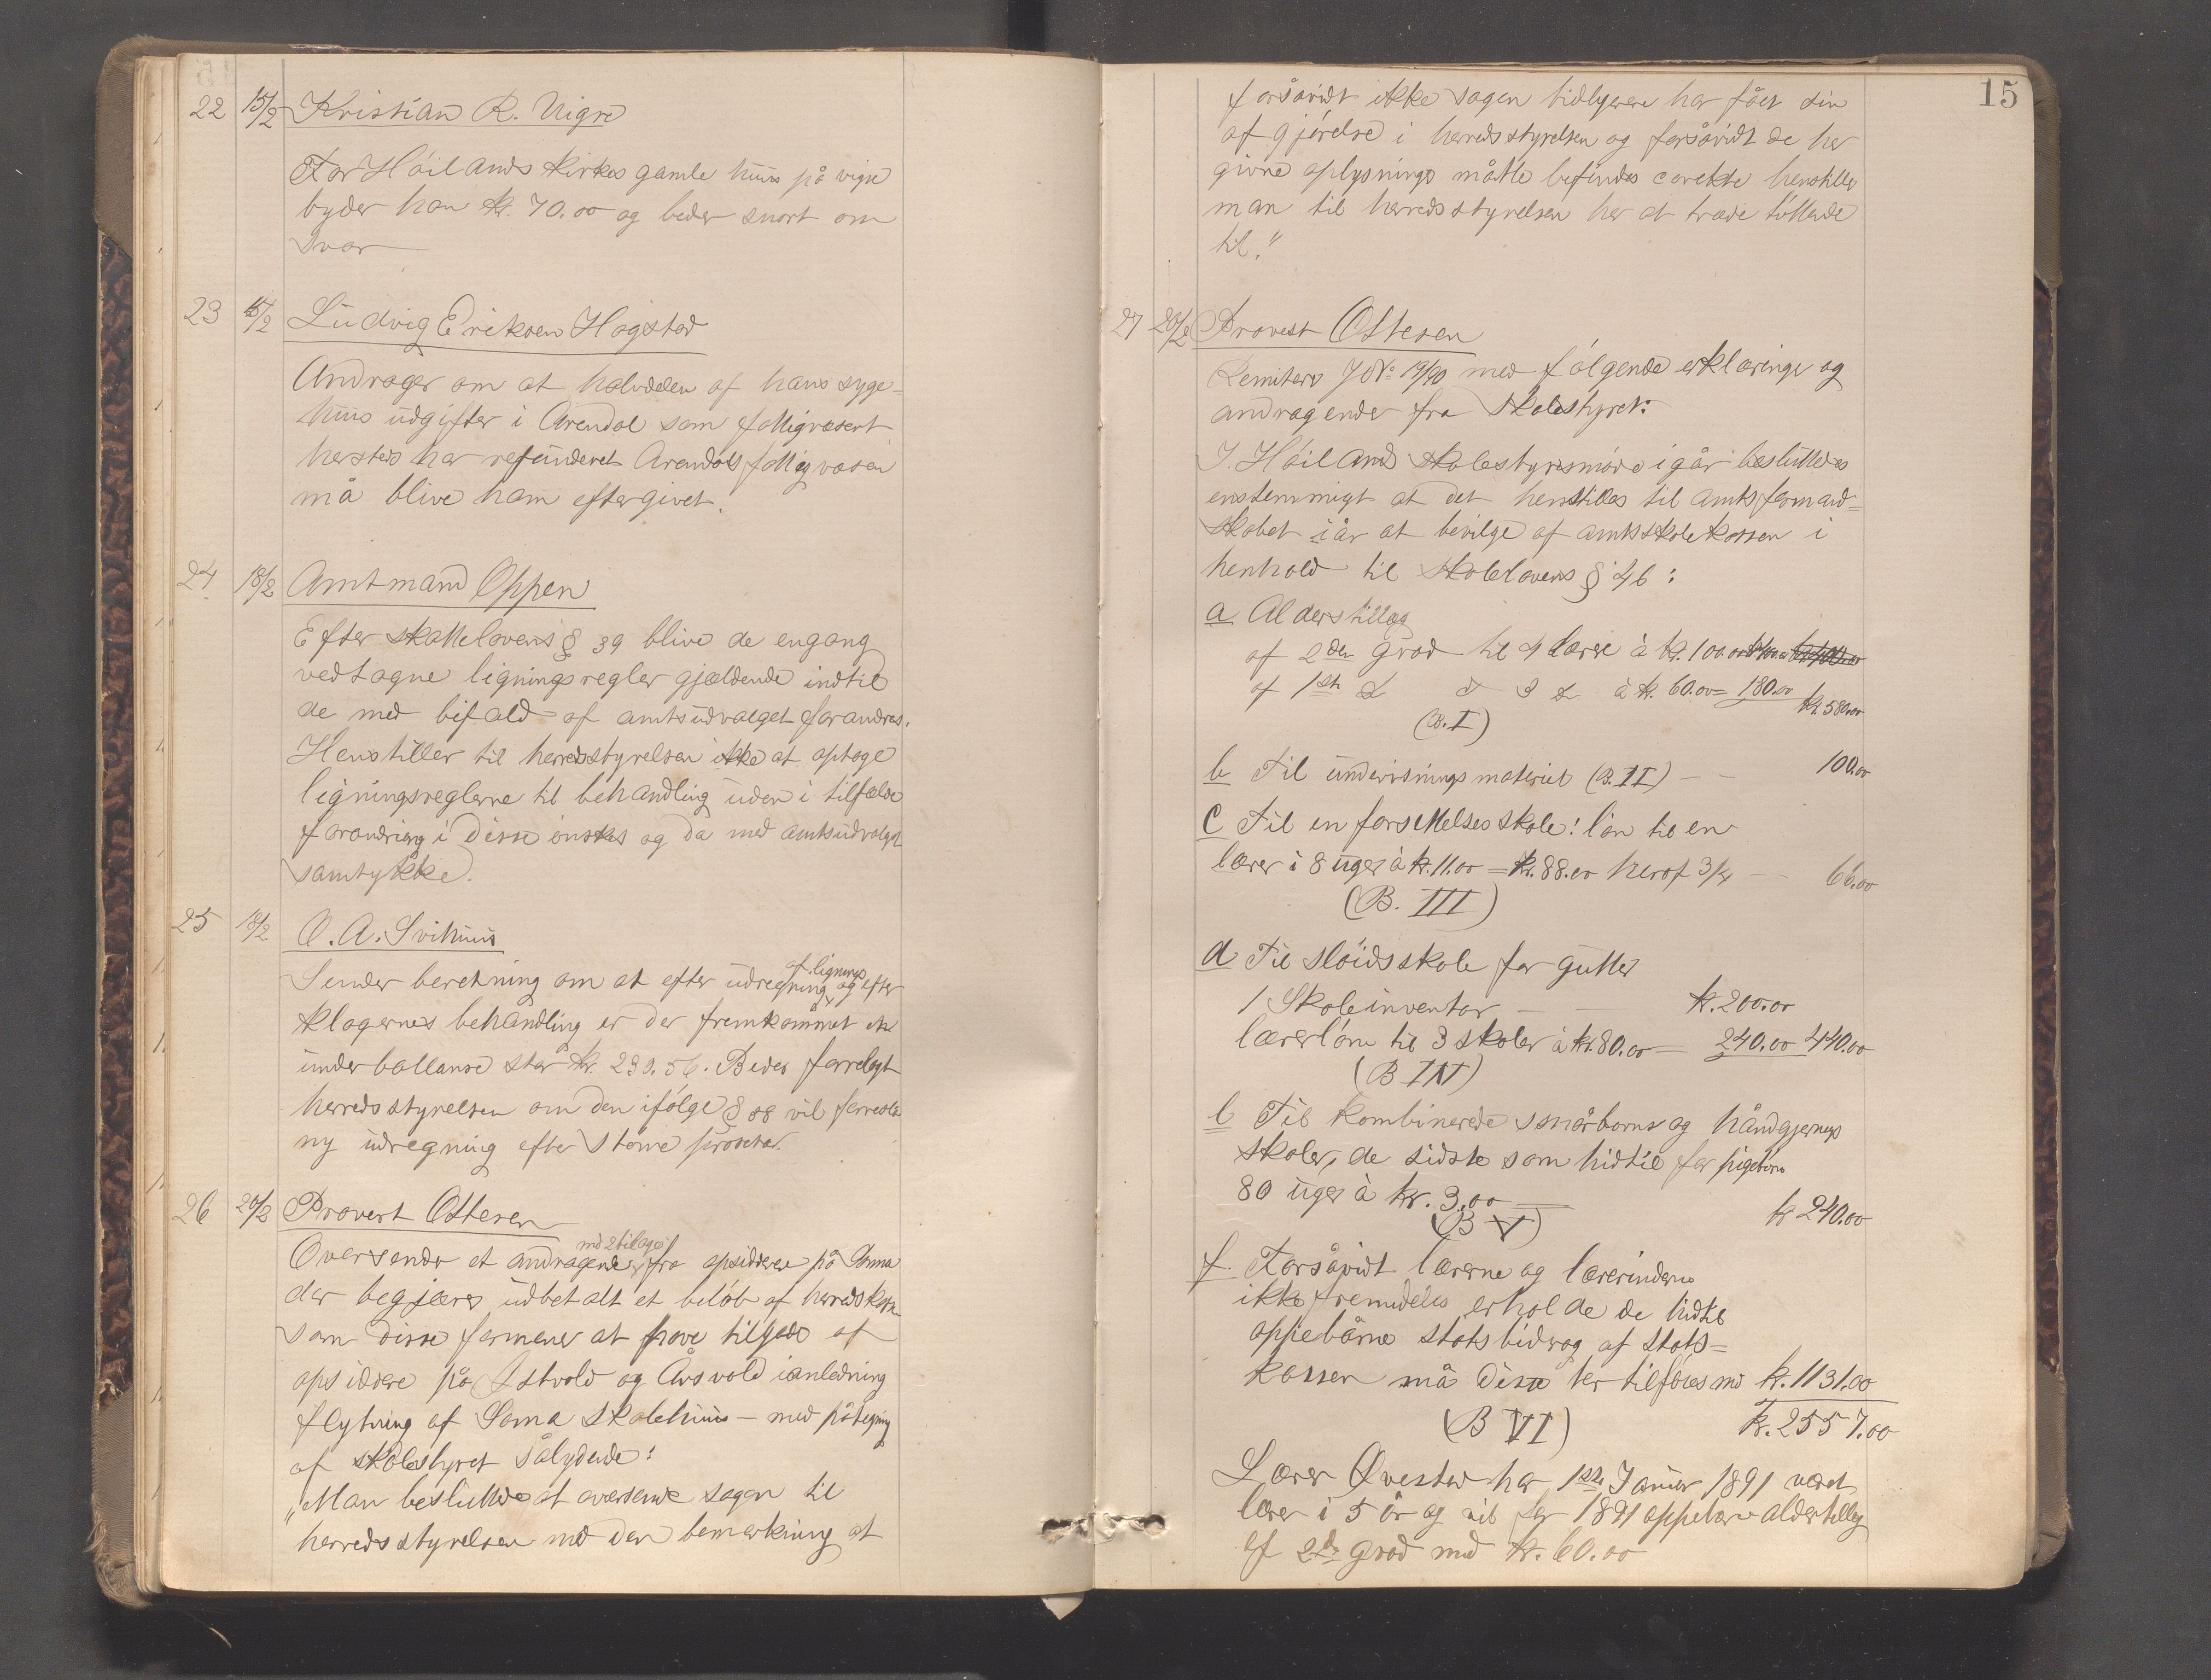 22 15/2 Kristian R. Vigre
For Höilands kirkes gamle huus på vigre
byder han kr. 70.00 og beder snart om
svar
23 15/2 Ludvig Eriksen Hogstad
Andrager om at halvdelen af hans syge-
huus udgifter i Arendal som fattigvæsent
hersteds har refunderet Arendals fattigvæsen
må blive ham eftergivet.
24 18/2 Amtmand Oppen
Efter skattelovens § 39 blive de engang
vedtagne ligningsregler gjældende indtil
de med bifald af amtsudvalget forandres.
Henstiller til herredsstyrelsen ikke at optage
ligningsreglerne til behandling uden i tilfælde
forandring i disse önskes og da med amtsudvalgets
samtykke.
25 18/2 O. A. Svihuus
Sender beretning om at efter udregning af lignings og efter
klagernes behandling er der fremkommet en
underballanse stor kr. 230.56. Bedes forelagt
herredsstyrelsen om den ifölge § 58 vil foreta
ny udregning efter större prosenter.
26 20/2 Provst Ottesen
Oversender et andragende med 2 bilage fra opsiddere på Soma
der begjærer udbetalt et belöb af herredskassen
som disse formener at have tilgode af
opsiddere på Østvold og Åsvold i anledning
flytning af Soma skolehuus – med påtegning
af skolestyret sålydende:
"Man besluttede at oversende sagen til
herredsstyrelsen med den bemærkning at
15
forsåvidt ikke sagen tidligere har fået sin
afgjörelse i herredsstyrelsen og forsåvidt de her
givne oplysninger måtte befindes corekte henstiller
man til herredsstyrelsen her at træde støttende
til."
27 20/2 Provst Ottesen
Remiterer J No 19/90 med fölgende erklæringer og
andragender fra skolestyret:
I Höiland skolestyresmöde igår besluttedes
enstemmigt at det henstilles til amtsformand-
skabet iår at bevilge af amtsskolekassen i
henhold til skolelovens § 46:
a Alderstillæg
af 2den grad til 4 lærere à kr. 100.00
af 1ste d d 3 d à kr. 60.00 = 180.00 kr 580.00
(B. I)
b Til undervisnings materiel (B. II) – – 100.00
c Til en forsettelses skole: lön til en
lærer i 8 uger à kr. 11.00 = kr. 88.00 herof 3/4 – 66.00
(B. III)
d Til slöidsskole for gutter
1 Skoleinventar – – kr. 200.00
lærerlön til 3 skoler à kr. 80.00 = 240.00 440.00
(B IV)
e Til kombinerede småborns og håndgjernings
skoler, de sidste som hidtil for pigebörn
80 uger à kr. 3.00 – kr 240.00
(B V)
f. Forsåvidt lærerne og lærerinderne
ikke fremdeles erholde de hidtil
oppebårne statsbidrag af stats-
kassen må disse her tilföies med kr. 1131.00
(B VI) kr. 2557.00
Lærer Øvestad har 1ste Januar 1891 været
lærer i 5 år og vil for 1891 oppebære alderstillæg
af 2de grad med kr. 60.00